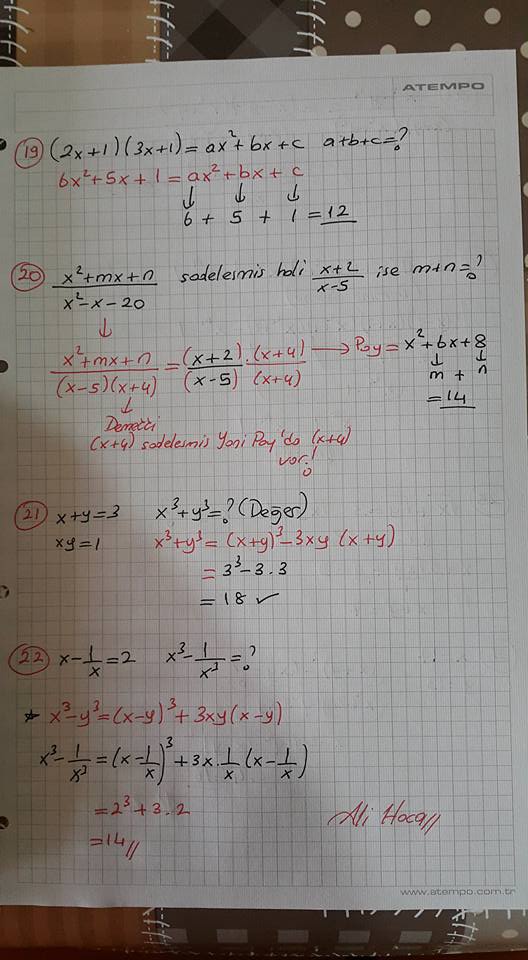 ATEMPO
19 (2x+1)(3x+1)=ax²+bx+c a+b+c=?
6x²+5x+1=ax²+bx+c
↓ ↓ ↓
6 + 5 + 1 = 12
20 x²+mx+n / x²-x-20 sadeleşmiş hali x+2 / x-5 ise m+n=?
↓
x²+mx+n / (x-5)(x+4) = (x+2) / (x-5) . (x+4) / (x+4) → Pay = x²+6x+8
↓ ↓
m + n
= 14
↓
Demekki
(x+4) sadeleşmiş Yani Pay'da (x+4)
var!
21 x+y=3 x³+y³=? (Değer)
xy=1 x³+y³=(x+y)³-3xy(x+y)
= 3³-3.3
= 18 ✓
22 x-1/x=2 x³-1/x³=?
* x³-y³=(x-y)³+3xy(x-y)
x³-1/x³=(x-1/x)³+3x.1/x(x-1/x)
=2³+3.2
=14//
Ali Hoca//
www.atempo.com.tr